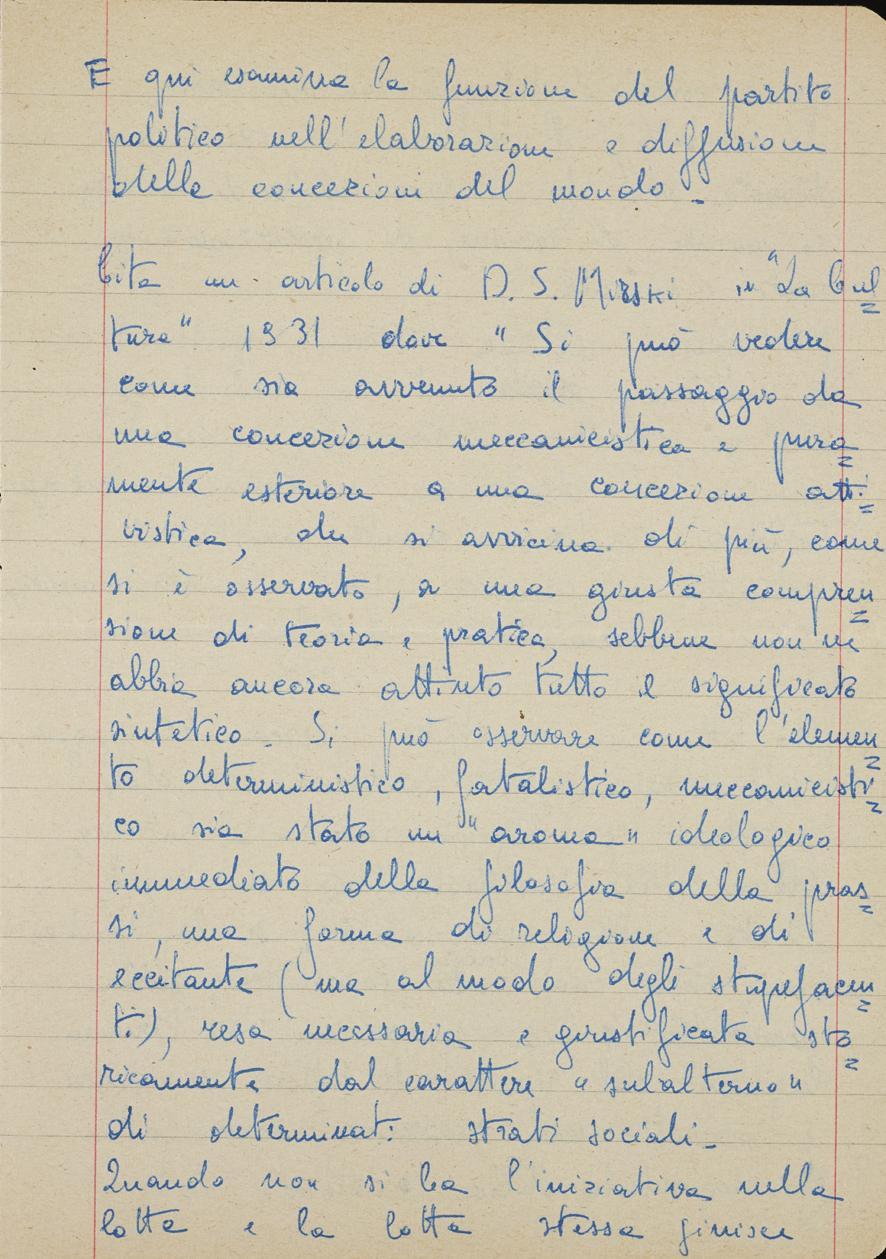 E qui esamina la funzione del partito
politico nell'elaborazione e diffusione
delle concezioni del mondo -
Cita un articolo di D. S. Mirski in "La Cul=
tura" 1931 dove "Si può vedere
come sia avvenuto il passaggio da
una concezione meccanicistica e pura=
mente esteriore a una concezione atti=
vistica, che si avvicina di più, come
si è osservato, a una giusta compren=
sione di teoria e pratica, sebbene non ne
abbia ancora attinto tutto il significato
sintetico - Si può osservare come l'elemen=
to deterministico, fatalistico, meccanicisti=
co sia stato un "aroma" ideologico
immediato della filosofia della pras=
si, una forma di religione e di
eccitante (ma al modo degli stupefacen=
ti), resa necessaria e giustificata sto=
ricamente dal carattere "subalterno"
di determinati strati sociali -
Quando non si ha l'iniziativa nella
lotta e la lotta stessa finisce